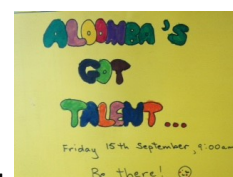 ALOOMBA'S
GOT
TALENT...
Friday 15th September, 9:00am
Be there!